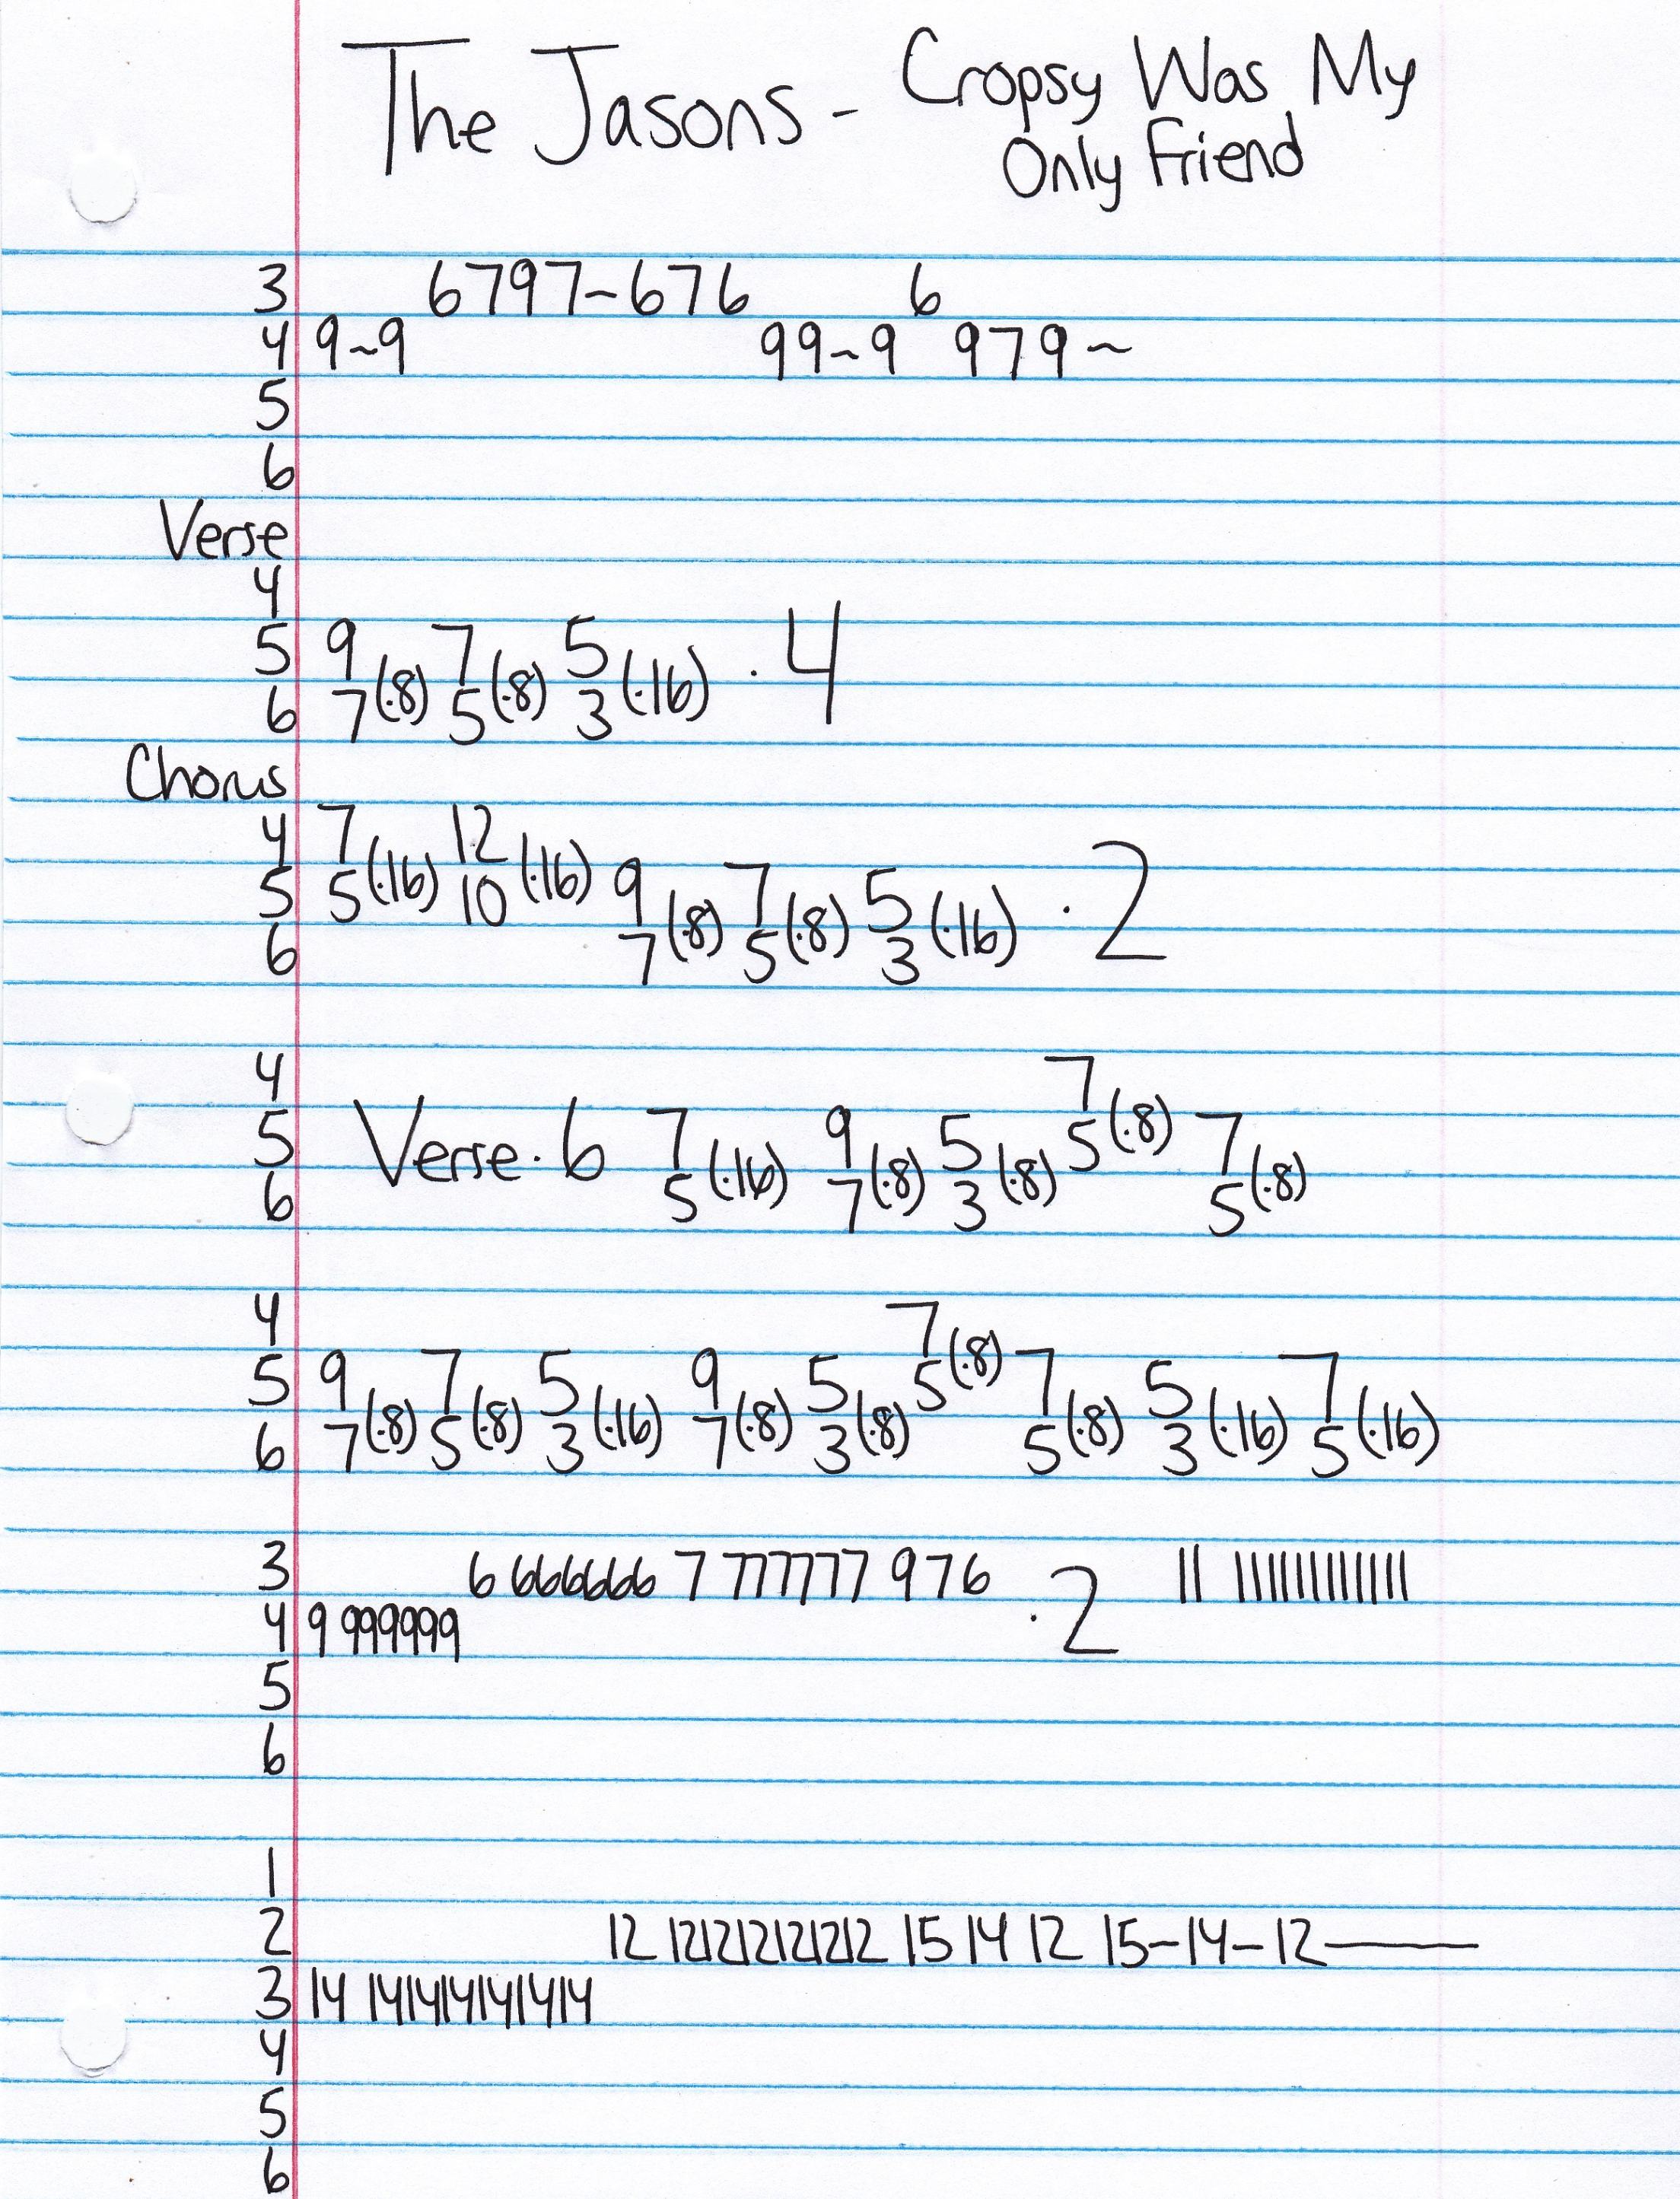 The Jasons - Cropsy Was My
Only Friend
3 6797~676 6
4 9~9 99~9 979~
5
6
Verse
4
5 9 7 5
(·8) (·8) (·16) · 4
6 7 5 3
Chorus
4 7 12
(·16) (·16)
5 5 10 9 7 5
(·8) (·8) (·16) · 2
6 7 5 3
4 7
(·8)
5 Verse · 6 7 9 5 5 7
(·16) (·8) (·8) (·8)
6 5 7 3 5
4 7
(·8)
5 9 7 5 9 5 5 7 5 7
(·8) (·8) (·16) (·8) (·8) (·8) (·16) (·16)
6 7 5 3 7 3 5 3 5
3 6 666666 7 777777 976 · 2 11 111111111111
4 9 999999
5
6
1
2 12 121212121212 15 14 12 15-14-12—
3 14 141414141414
4
5
6